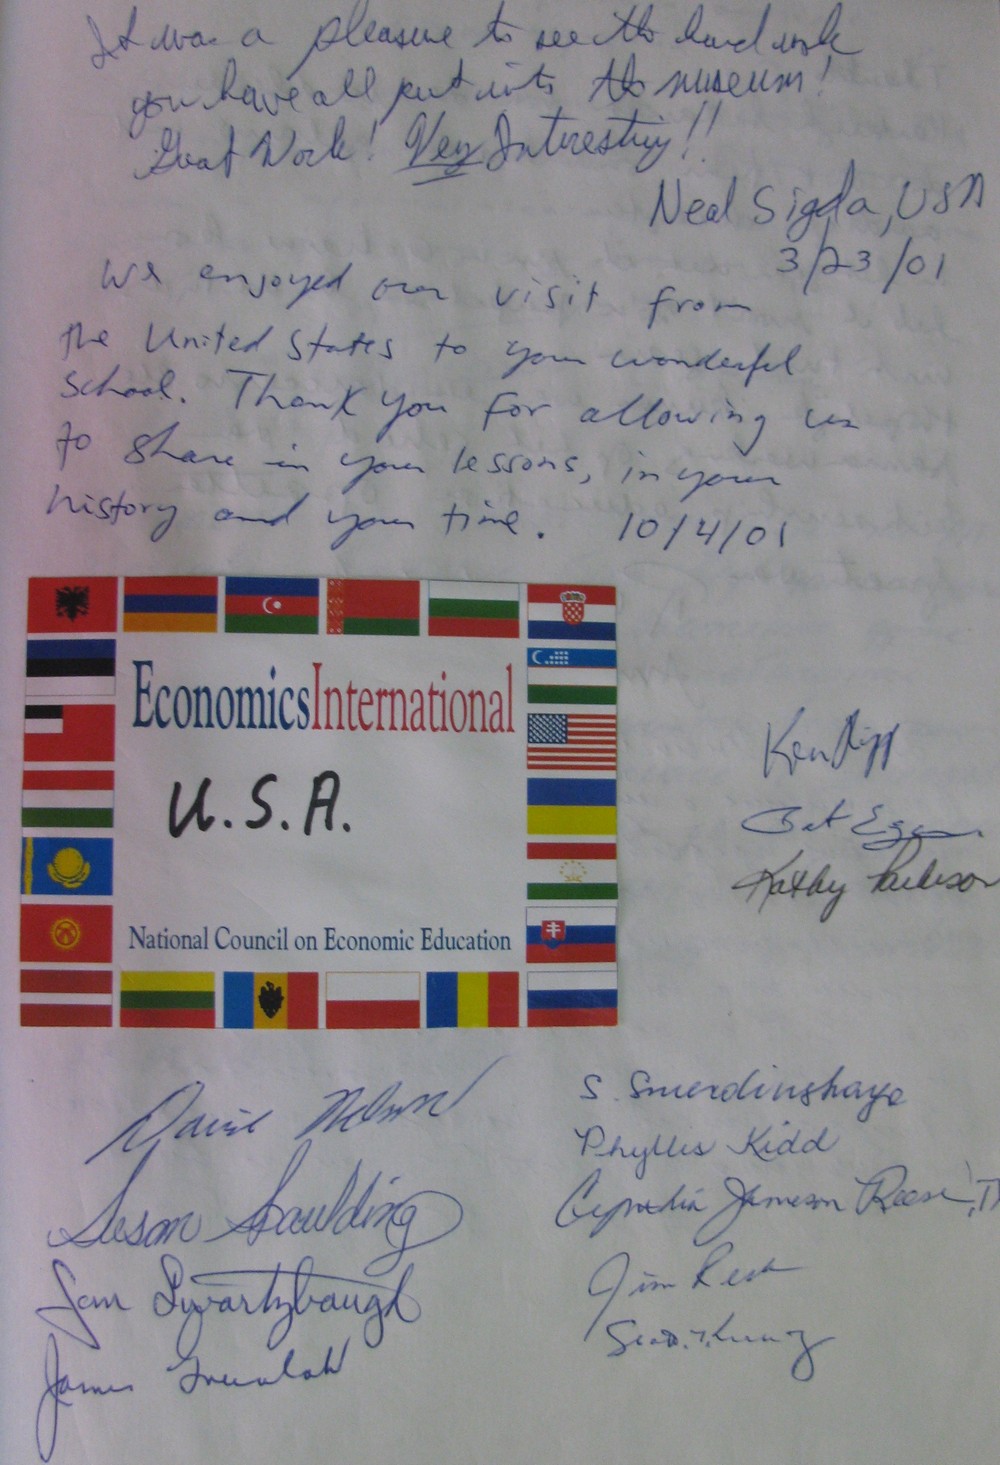 It was a pleasure to see the hard work
you have all put into the museum!
Great Work! Very Interesting!!
Neal Sigda, USA
3/23/01
We enjoyed our visit from
the United States to your wonderful
School. Thank you for allowing us
to share in your lessons, in your
history and your time. 10/4/01
EconomicsInternational
U.S.A.
National Council on Economic Education
Ken
Kathy
Susan Spaulding
Sam Swartzbaugh
James
S.
Phyllis Kidd
Cynthia Jameson Reese
Jim